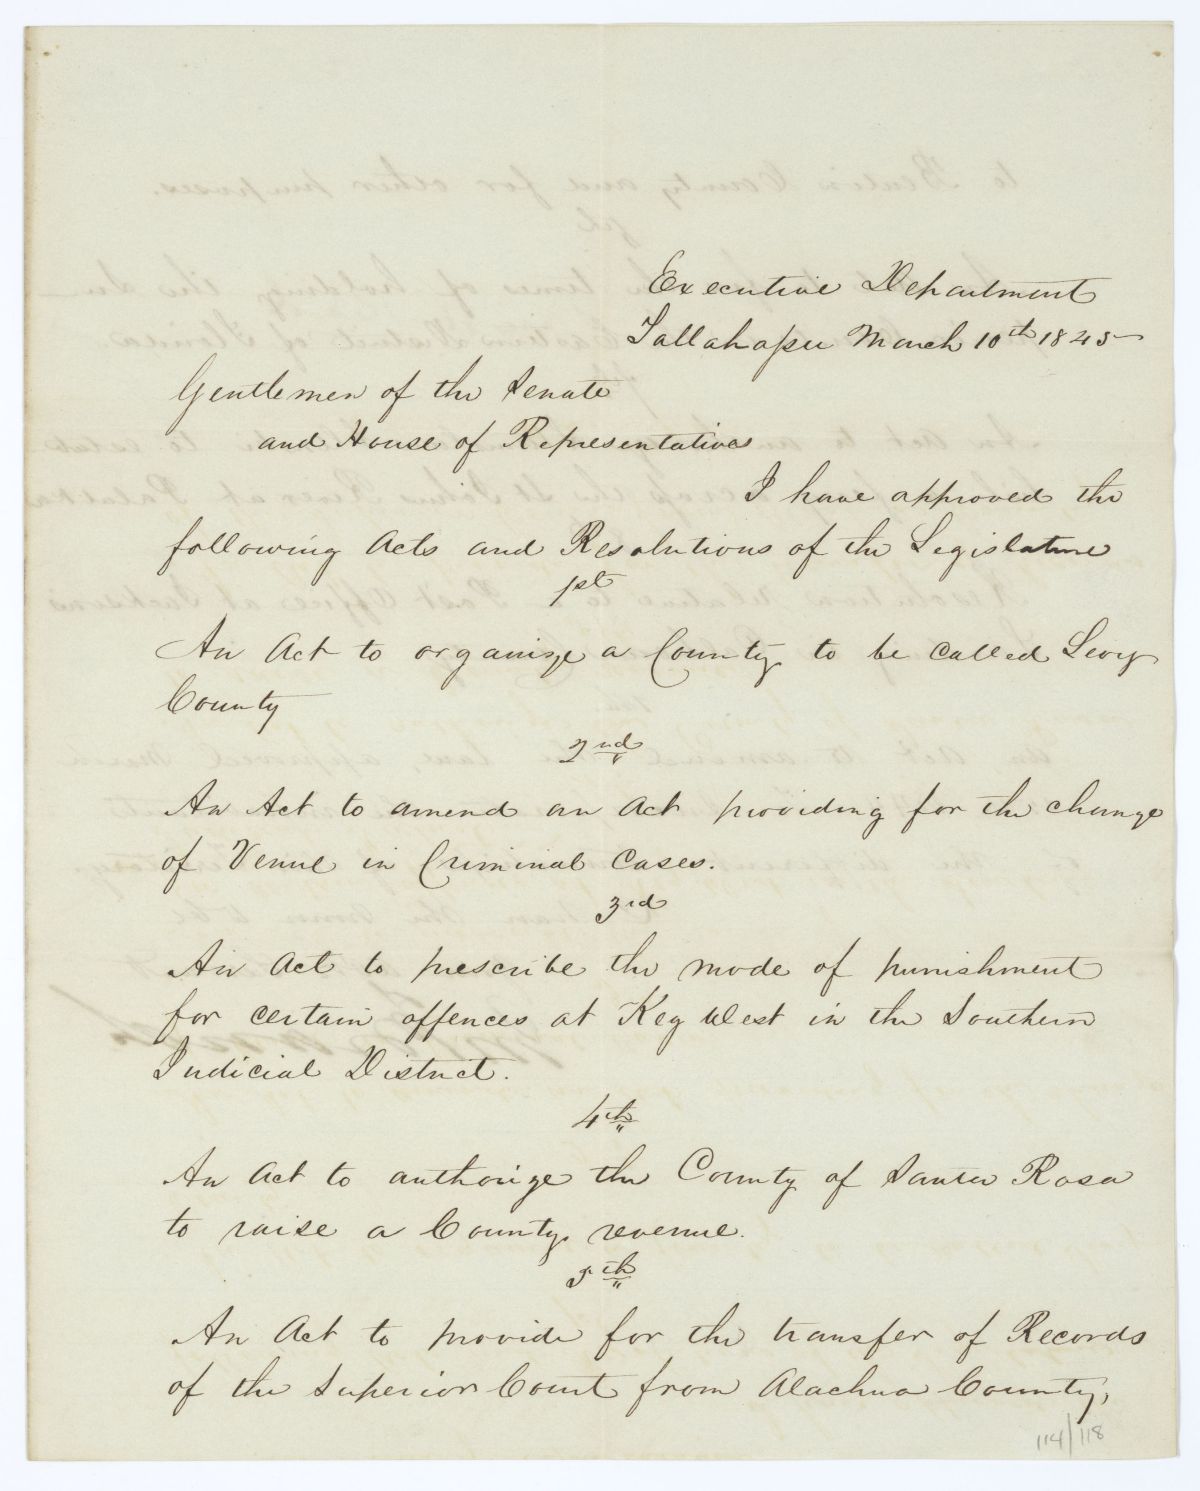 Executive Department
Tallahassee March 10th 1845
Gentlemen of the Senate
and House of Representatives
I have approved the
following Acts and Resolutions of the Legislature
1st
An Act to organize a County to be called Levy
County
2nd
An Act to amend an Act providing for the change
of Venue in Criminal Cases.
3rd
An Act to prescribe the mode of punishment
for certain offences at Key West in the Southern
Judicial District.
4th
An Act to authorize the County of Santa Rosa
to raise a County revenue.
5th
An Act to provide for the transfer of Records
of the Superior Court from Alachua County,
114/118